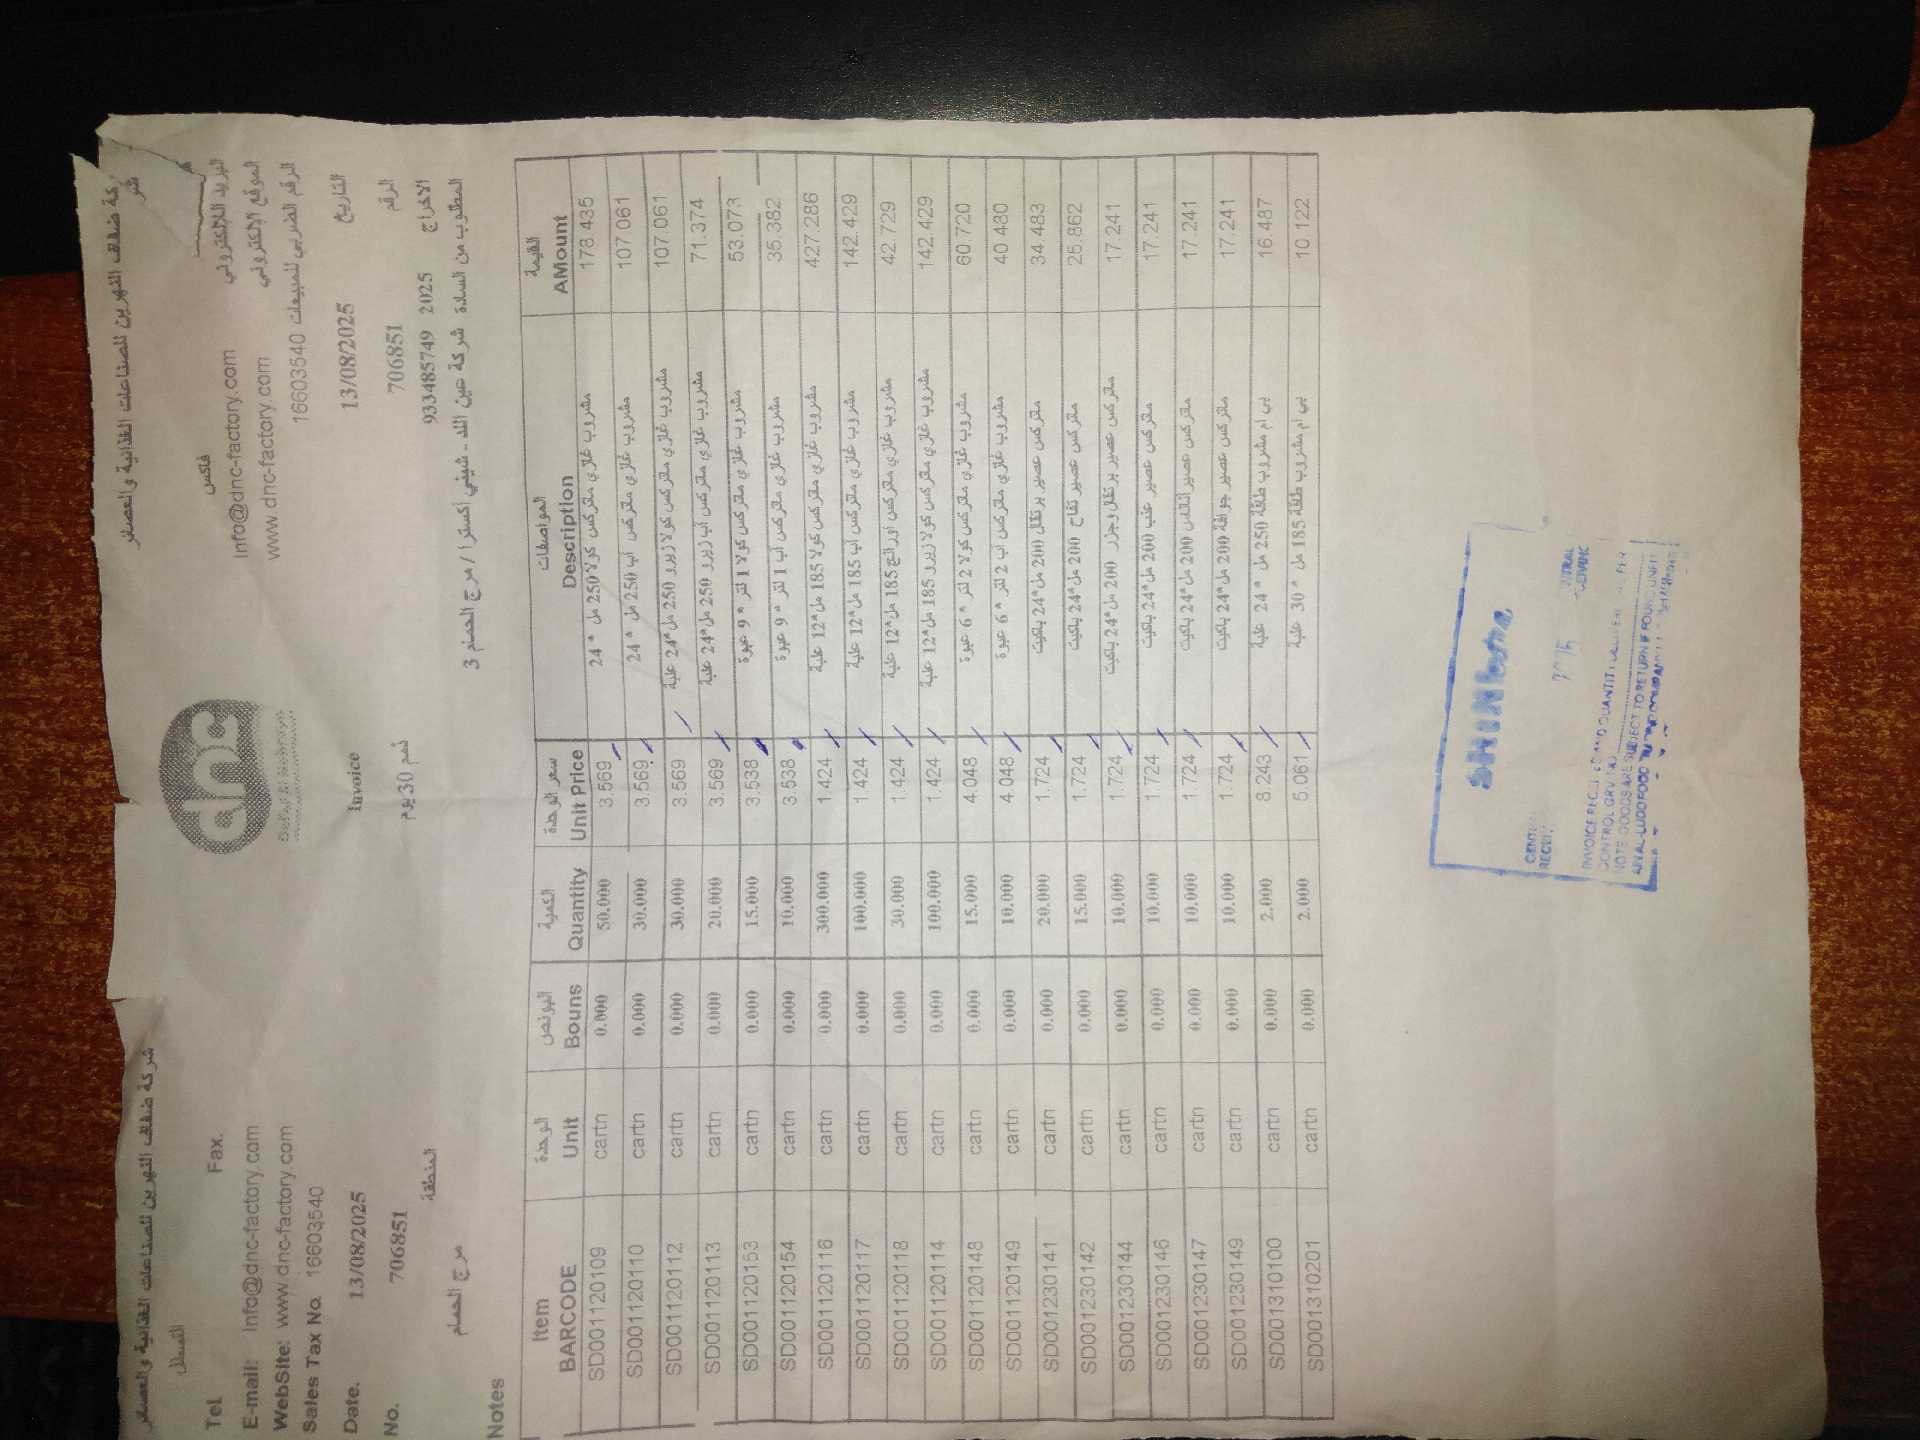 شركة ضفاف النهرين للصناعات الغذائية والعصائر
القسطل
Tel. Fax. فاكس
E-mail: Info@dnc-factory.com Info@dnc-factory.com البريد الالكتروني
WebSite: www.dnc-factory.com www.dnc-factory.com الموقع الإلكتروني
Sales Tax No. 16603540 الرقم الضريبي للمبيعات 16603540
dnc
Date. 13/08/2025 Invoice 13/08/2025 التاريخ
No. 706851 ذمم 30 يوم 706851 الرقم
المنطقة 933485749 2025 الاخراج
مرج الحمام المطلوب من السادة شركة عين اللد - شيني أكسترا / مرج الحمام 3
Notes
Item الوحدة البونص الكمية سعر الوحدة المواصفات القيمة
BARCODE Unit Bouns Quantity Unit Price Description AMount
SD001120109 cartn 0.000 50.000 3.569 مشروب غازي متركس كولا 250 مل * 24 178.435
SD001120110 cartn 0.000 30.000 3.569 مشروب غازي متركس آب 250 مل * 24 107.061
SD001120112 cartn 0.000 30.000 3.569 مشروب غازي متركس كولا زيرو 250 مل*24 علبة 107.061
SD001120113 cartn 0.000 20.000 3.569 مشروب غازي متركس آب زيرو 250 مل*24 علبة 71.374
SD001120153 cartn 0.000 15.000 3.538 مشروب غازي متركس كولا 1 لتر * 9 عبوة 53.073
SD001120154 cartn 0.000 10.000 3.538 مشروب غازي متركس آب 1 لتر * 9 عبوة 35.382
SD001120116 cartn 0.000 300.000 1.424 مشروب غازي متركس كولا 185 مل*12 علبة 427.286
SD001120117 cartn 0.000 100.000 1.424 مشروب غازي متركس آب 185 مل*12 علبة 142.429
SD001120118 cartn 0.000 30.000 1.424 مشروب غازي متركس اورانج 185 مل*12 علبة 42.729
SD001120114 cartn 0.000 100.000 1.424 مشروب غازي متركس كولا زيرو 185 مل*12 علبة 142.429
SD001120148 cartn 0.000 15.000 4.048 مشروب غازي متركس كولا 2 لتر * 6 عبوة 60.720
SD001120149 cartn 0.000 10.000 4.048 مشروب غازي متركس آب 2 لتر * 6 عبوة 40.480
SD001230141 cartn 0.000 20.000 1.724 متركس عصير برتقال 200 مل*24 باكيت 34.483
SD001230142 cartn 0.000 15.000 1.724 متركس عصير تفاح 200 مل*24 باكيت 25.862
SD001230144 cartn 0.000 10.000 1.724 متركس عصير برتقال وجزر 200 مل*24 باكيت 17.241
SD001230146 cartn 0.000 10.000 1.724 متركس عصير عنب 200 مل*24 باكيت 17.241
SD001230147 cartn 0.000 10.000 1.724 متركس عصير أناناس 200 مل*24 باكيت 17.241
SD001230149 cartn 0.000 10.000 1.724 متركس عصير جوافة 200 مل*24 باكيت 17.241
SD001310100 cartn 0.000 2.000 8.243 بي ام مشروب طاقة 250 مل * 24 علبة 16.487
SD001310201 cartn 0.000 2.000 5.061 بي ام مشروب طاقة 185 مل * 30 علبة 10.122
INVOICE
CONTROL GRV NO
NOTE: GOODS ARE SUBJECT TO RETURN IF FOUND UNFIT